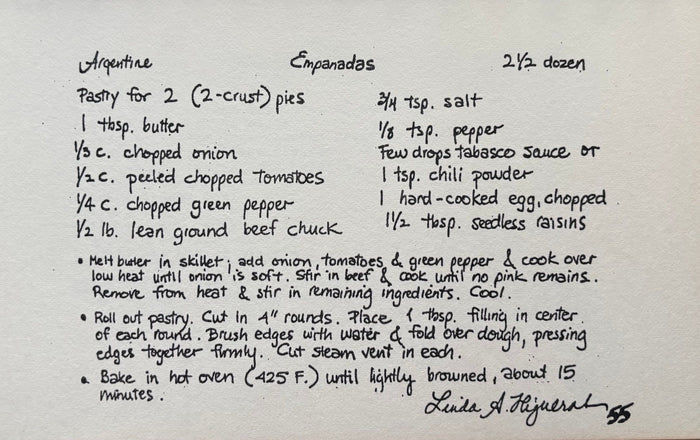 Argentine Empanadas 2 1/2 dozen
Pastry for 2 (2-crust) pies
1 tbsp. butter
1/3 c. chopped onion
1/2 c. peeled chopped tomatoes
1/4 c. chopped green pepper
1/2 lb. lean ground beef chuck
3/4 tsp. salt
1/8 tsp. pepper
Few drops tabasco sauce or
1 tsp. chili powder
1 hard-cooked egg, chopped
1 1/2 tbsp. seedless raisins
• Melt butter in skillet; add onion, tomatoes & green pepper & cook over
low heat until onion is soft. Stir in beef & cook until no pink remains.
Remove from heat & stir in remaining ingredients. Cool.
• Roll out pastry. Cut in 4" rounds. Place 1 tbsp. filling in center
of each round. Brush edges with water & fold over dough, pressing
edges together firmly. Cut steam vent in each.
• Bake in hot oven (425° F.) until lightly browned, about 15
minutes.
Linda A. 55